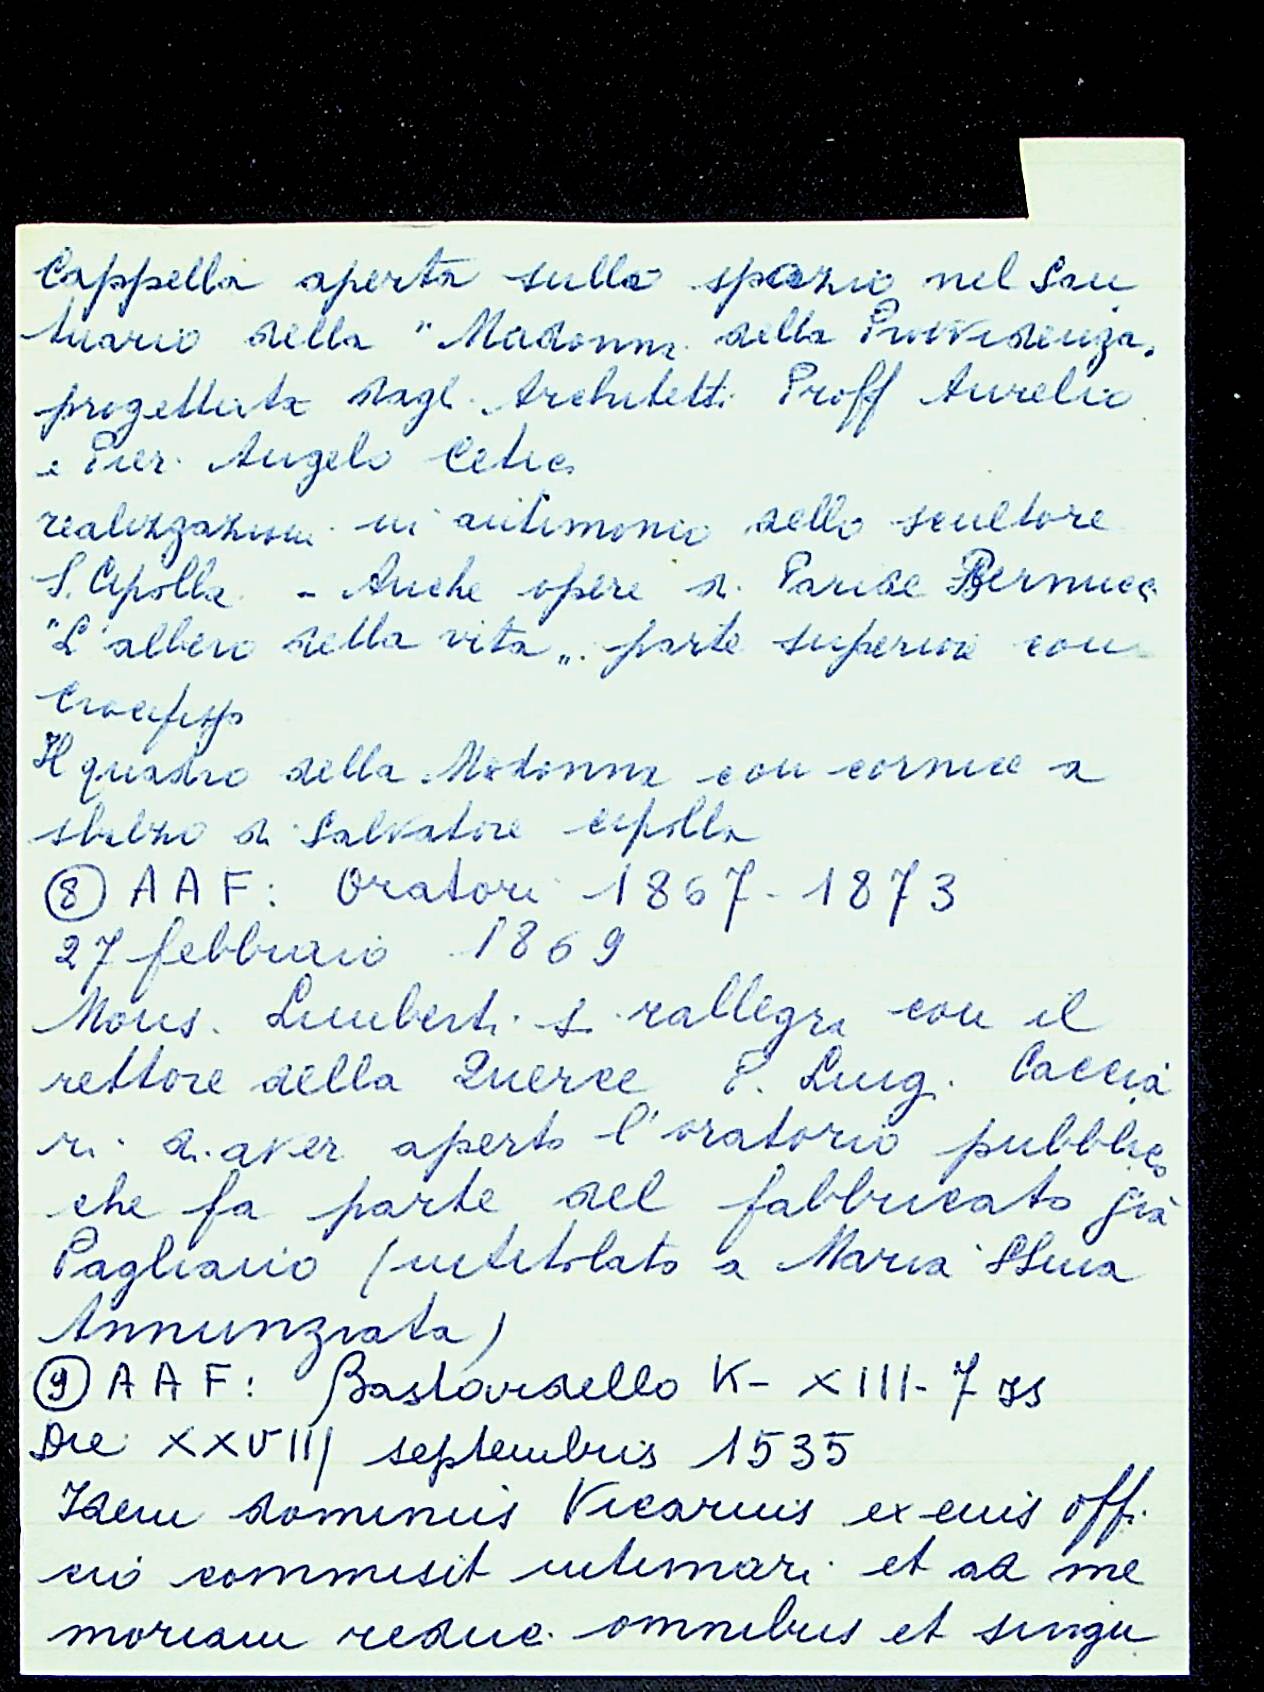 Cappella aperta sullo spazio nel San
tuario della "Madonna della Provvidenza"
progettata dagli Architetti Proff Aurelio
e Pier Angelo Cetica
realizzazioni in antimonio dello scultore
S. Cipolla - Anche opere di Paride Bernucci
"L'albero della vita" parte superiore con
Crocifisso
Il quadro della Madonna con cornice a
sbalzo di Salvatore Cipolla
⑧ A A F: Oratori 1867-1873
27 febbraio 1869
Mons. Limberti si rallegra con il
rettore della Querce P. Luigi Caccia
ri di aver aperto l'oratorio pubblico
che fa parte del fabbricato già
Pagliano (intitolato a Maria SSma
Annunziata)
⑨ A A F: Bastardello K- XIII- 7 ss
Die XXVIII septembris 1535
Idem dominus Vicarius ex eius offi
cio commisit intimari et ad me
moriam reduci omnibus et singu